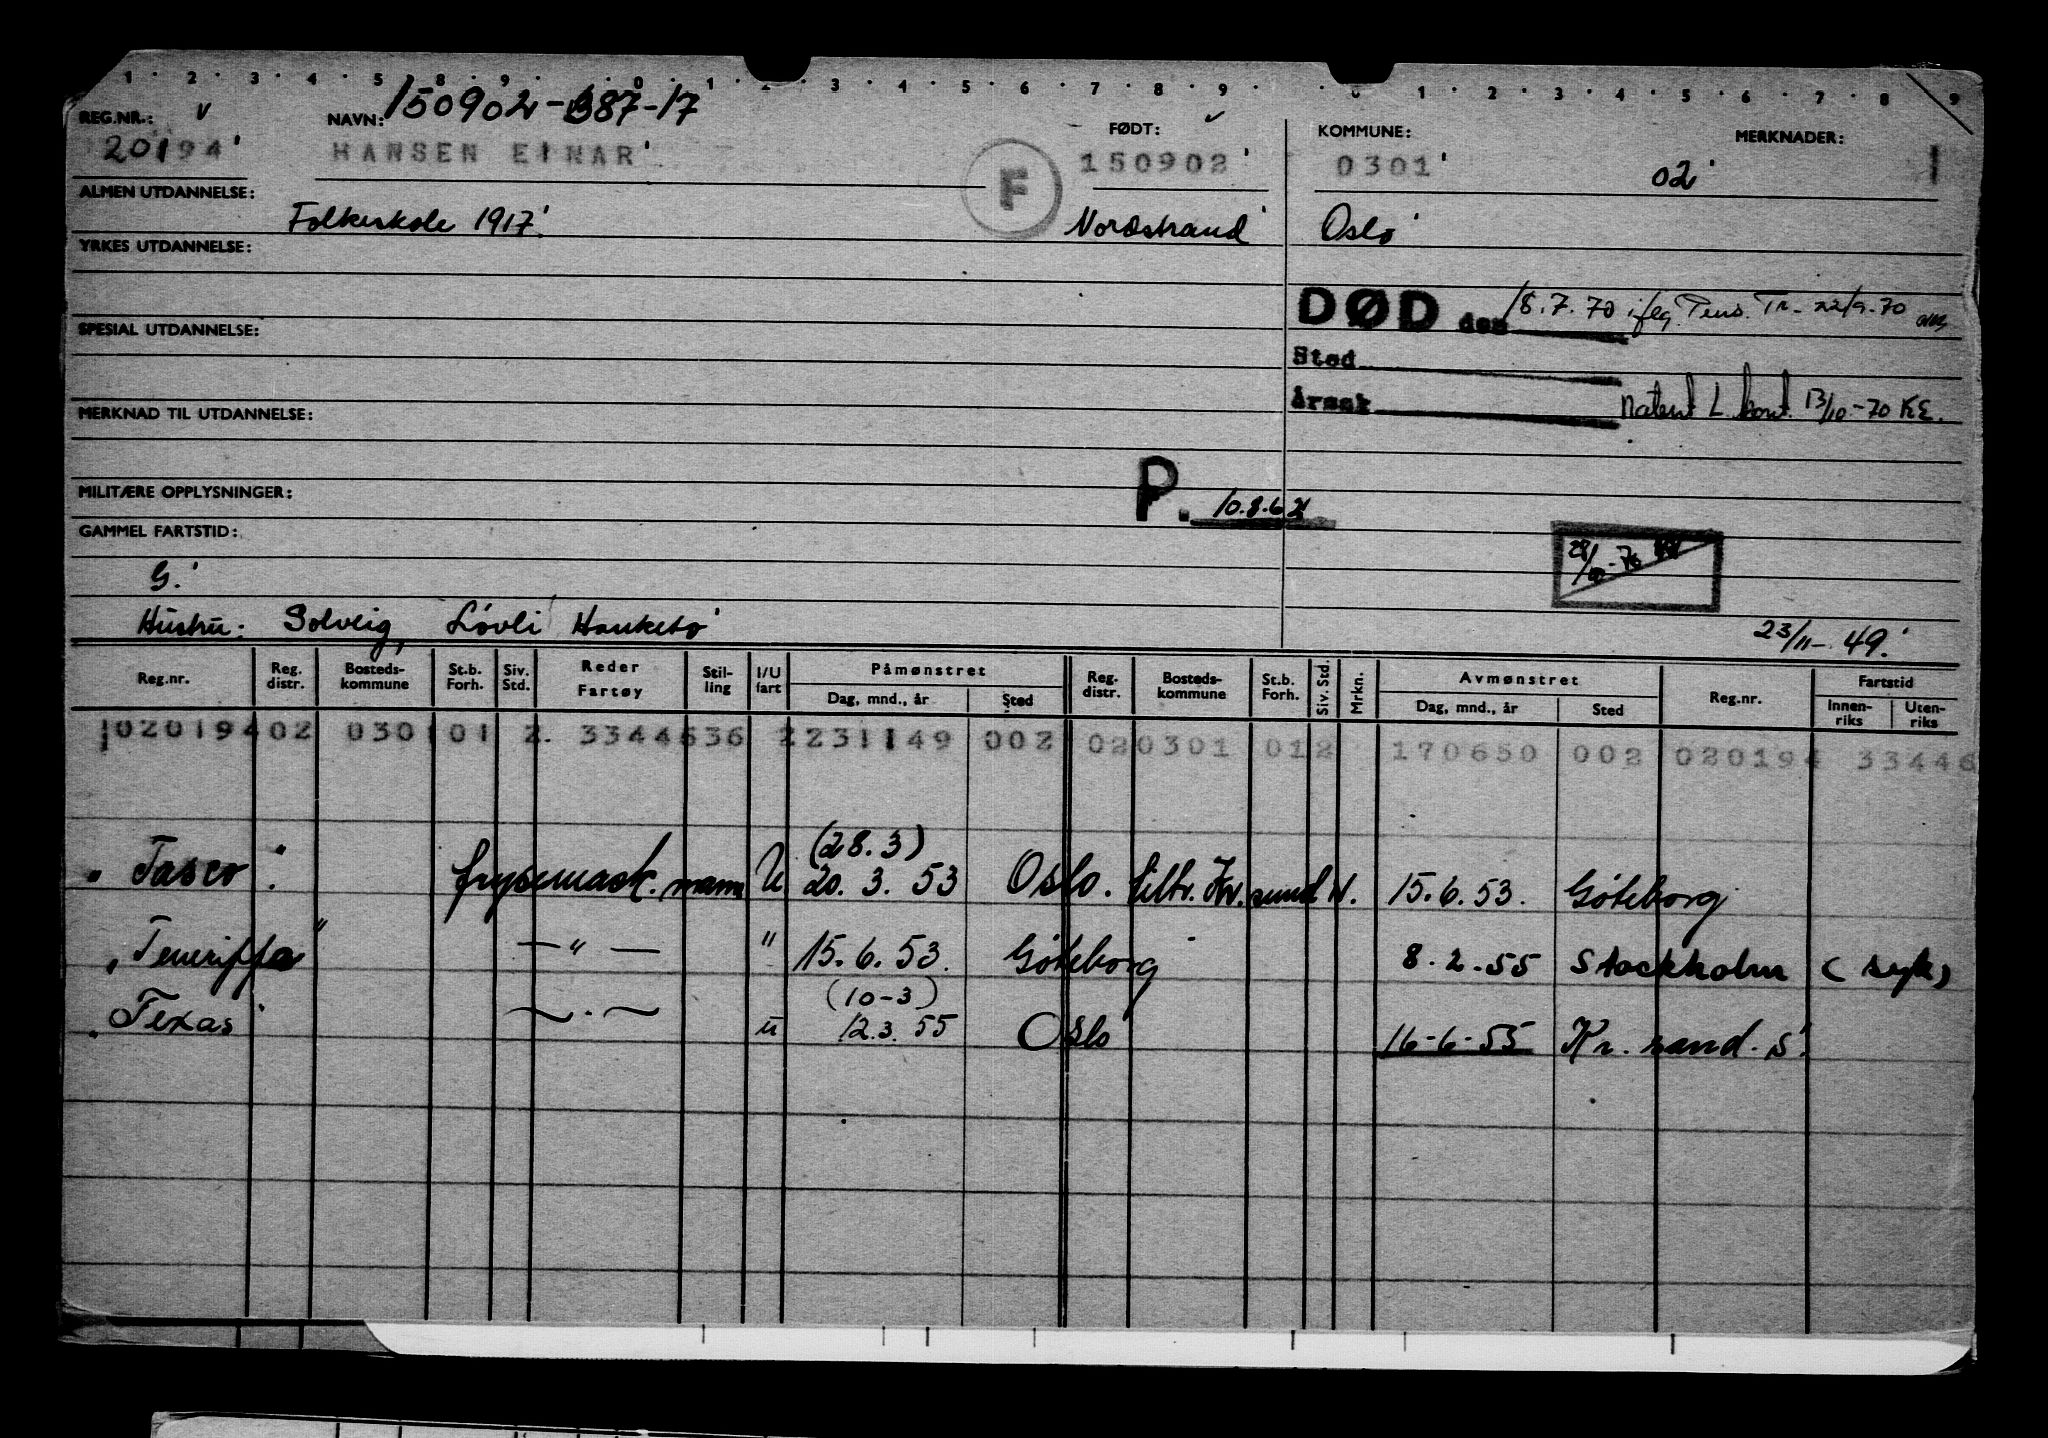 1 · 2 · 3 · 4 · 5 · 8 · 9 · 0 · 1 · 2 · 3 · 4 · 5 · 6 · 7 · 8 · 9 · 0 · 1 · 2 · 3 · 4 · 5 · 6 · 7 · 8 · 9
REG.NR.: v NAVN: 150902-387-17 FØDT: v KOMMUNE: MERKNADER:
20194 HANSEN EINAR F 150902 0301 02 1
ALMEN UTDANNELSE:
Folkeskole 1917. Nordstrand Oslo
YRKES UTDANNELSE:
DØD den 18.7.70 iflg. Pens. Tr. 22/9-70
SPESIAL UTDANNELSE:
Sted
Årsak 13/10-70 KE.
MERKNAD TIL UTDANNELSE:
MILITÆRE OPPLYSNINGER: P. 10.8.62
GAMMEL FARTSTID:
G.
Hustru: Solveig, Løvli Hauketo 23/11-49.
Reg.nr. Reg. distr. Bosteds-kommune St.b. Forh. Siv. Std. Reder Fartøy Stil-ling I/U fart Påmønstret Dag, mnd., år Sted Reg. distr. Bosteds-kommune St.b. Forh. Siv. Std. Mrkn. Avmønstret Dag, mnd., år Sted Reg.nr. Fartstid Innen-riks Uten-riks
102019402 0301 01 2. 3344636 2231149 002 020301 012 170650 002 020194 33446
(28.3)
" Tasco " frysemask. mann U 20. 3. 53 Oslo. tilh. Kr. sund N. 15.6.53. Göteborg
" Teneriffa " — " — " 15.6.53. Göteborg 8.2.55 Stockholm (syk)
(10-3)
" Texas " — " — u 12.3.55 Oslo 16-6-55 Kr. sand. S.